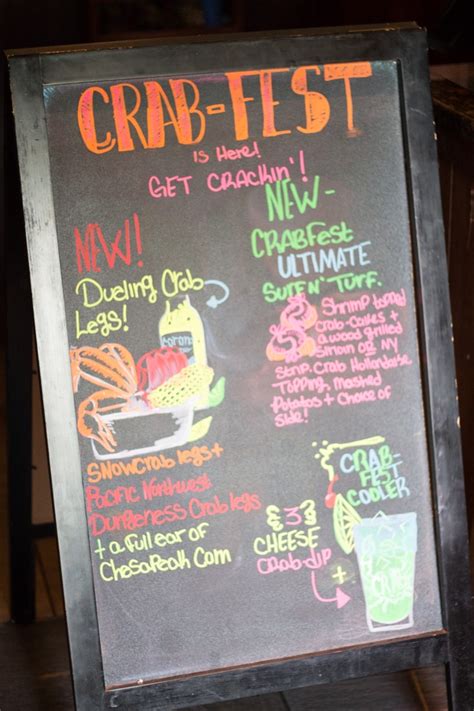 CRAB-FEST
is Here!
GET CRACKin'!
NEW!
Dueling Crab
Legs!
corona
SNOWCRAB legs +
Pacific Northwest
Dungeness Crab legs
+ a full ear of
Chesapeak Corn
NEW-
CRABFest
ULTIMATE
SURF N' TURF.
Shrimp topped
Crab-Cakes +
a wood grilled
Sirloin OR NY
Strip. Crab Hollandaise
TOPPING, Mashed
Potatos + Choice of
Side!
CRAB-
FEST
COOLER
3
CHEESE
Crab-dip
+